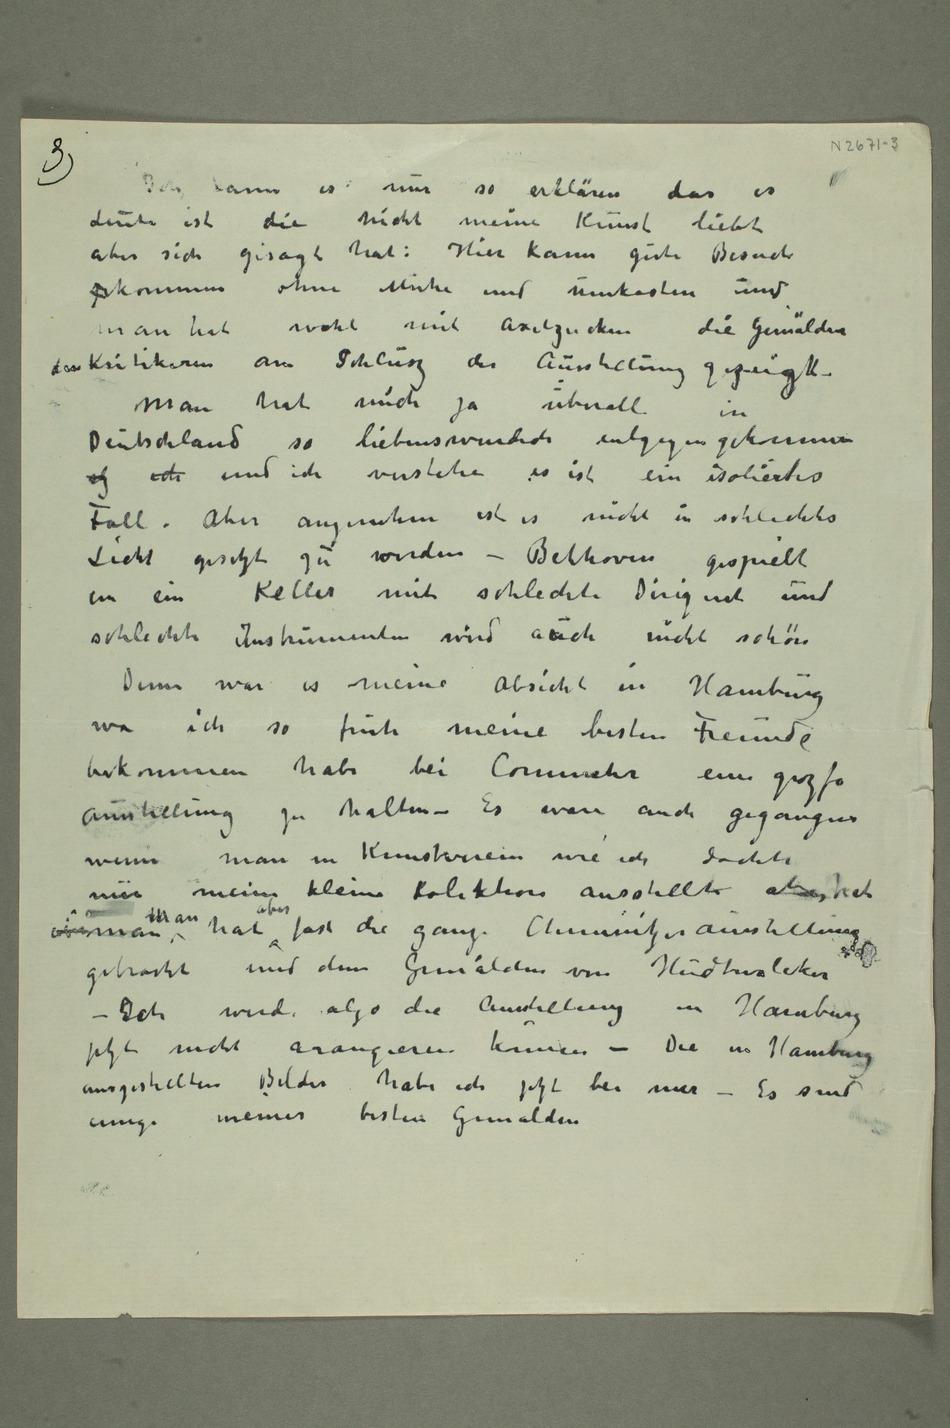 3)
N 2671-3
Ich kann es nur so erklären das es
Leute ist die nicht meine Kunst liebt
aber sich gesagt hat: Hier kann gute Besuch
kommen ohne Mühe und unkosten und
man hat wohl mit Axelzucken die Gemälden
den Kritikeren am Schlusz der Ausstellung gezeigt –
Man hat mich ja überall in
Deutschland so liebenswürdich entgegengekommen
og ich und ich verstehe es ist ein isoliertes
Fall. Aber angenehm ist es nicht in schlechtes
Licht gesetzt zu werden – Bethoven gespielt
in ein Keller mit schlechte Dirigent und
schlechte Instrumenten wird auch nicht schön
Denn war es meine Absicht in Hamburg
wo ich so früh meine besten Freunde
bekommen habe bei Commeter eine grosze
Austellung zu halten – Es wäre auch gegangen
wenn man in Kunstverein wie ich dachte
nur meine kleine Kolektion ausstellte
man man hat aber fast die ganze Chemnitzerausstellung
gebracht und dem Gemälden von Hudtwalcker
– Ich werde also die Austellung in Hamburg
jetzt nicht arangieren können – Die in Hamburg
ausgestellten Bilder habe ich jetzt bei mir – Es sind
einige meiner besten Gemälden